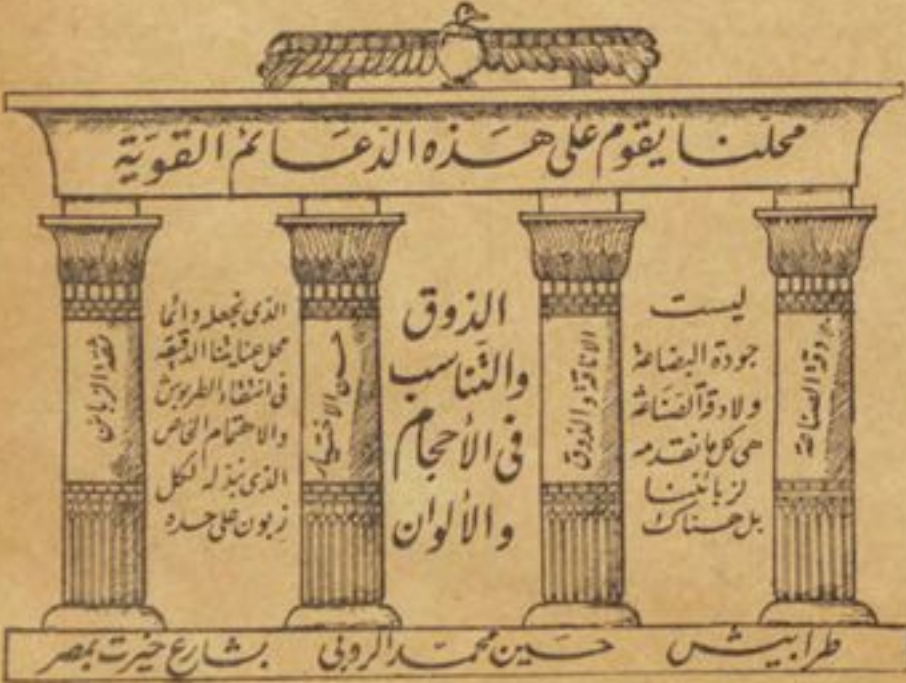 محلنا يقوم على هذه الدعائم القوية
دقة الصناعة
ليست
جودة البضاعة
ولا دقة الصناعة
هى كل ما نقدمه
لزبائننا
بل هناك
الاناقة والذوق
الذوق
والتناسب
فى الأحجام
والألوان
حسن الاختيار
الذى نجعله دائما
محل عنايتنا الدقيقة
فى انتقاء الطربوش
والاهتمام الخاص
الذى نبذله لكل
زبون على حده
ثقة الزبائن
طرابيش حسين محمد الروبى بشارع خيرت بمصر